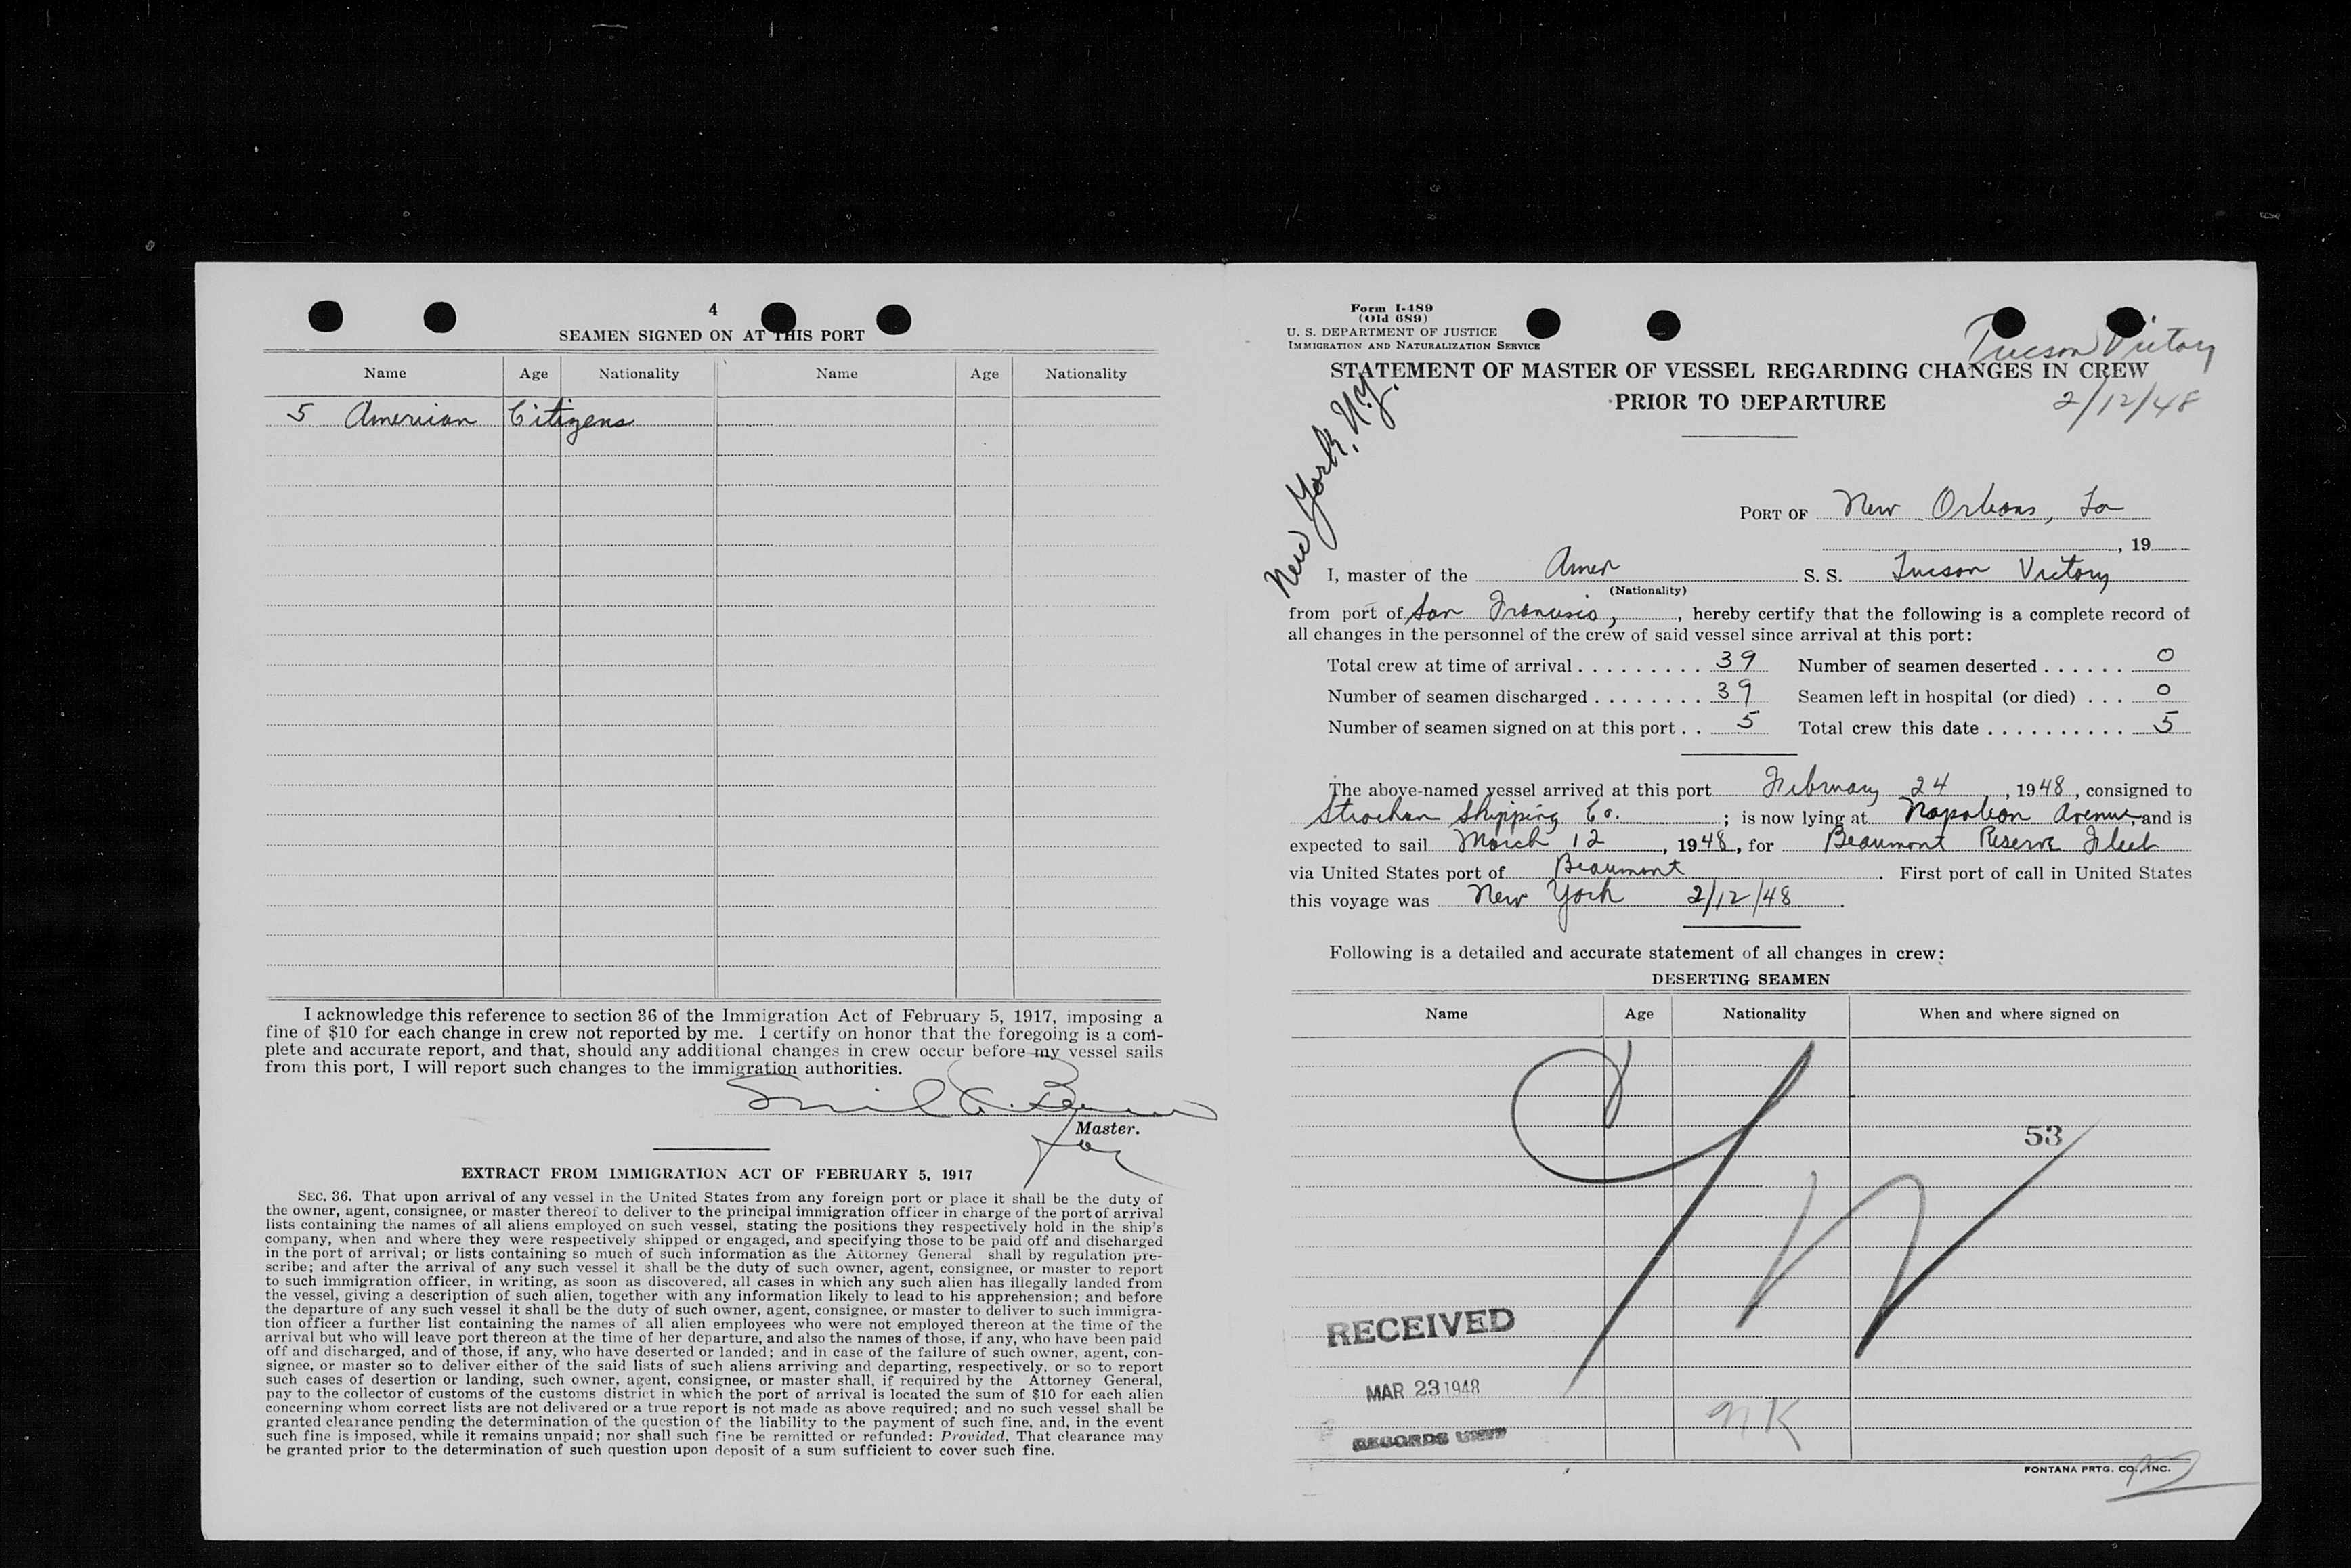 4
SEAMEN SIGNED ON AT THIS PORT
Name Age Nationality Name Age Nationality
5 American Citizens
I acknowledge this reference to section 36 of the Immigration Act of February 5, 1917, imposing a
fine of $10 for each change in crew not reported by me. I certify on honor that the foregoing is a com-
plete and accurate report, and that, should any additional changes in crew occur before my vessel sails
from this port, I will report such changes to the immigration authorities.
Master.
EXTRACT FROM IMMIGRATION ACT OF FEBRUARY 5, 1917
SEC. 36. That upon arrival of any vessel in the United States from any foreign port or place it shall be the duty of
the owner, agent, consignee, or master thereof to deliver to the principal immigration officer in charge of the port of arrival
lists containing the names of all aliens employed on such vessel, stating the positions they respectively hold in the ship's
company, when and where they were respectively shipped or engaged, and specifying those to be paid off and discharged
in the port of arrival; or lists containing so much of such information as the Attorney General shall by regulation pre-
scribe; and after the arrival of any such vessel it shall be the duty of such owner, agent, consignee, or master to report
to such immigration officer, in writing, as soon as discovered, all cases in which any such alien has illegally landed from
the vessel, giving a description of such alien, together with any information likely to lead to his apprehension; and before
the departure of any such vessel it shall be the duty of such owner, agent, consignee, or master to deliver to such immigra-
tion officer a further list containing the names of all alien employees who were not employed thereon at the time of the
arrival but who will leave port thereon at the time of her departure, and also the names of those, if any, who have been paid
off and discharged, and of those, if any, who have deserted or landed; and in case of the failure of such owner, agent, con-
signee, or master so to deliver either of the said lists of such aliens arriving and departing, respectively, or so to report
such cases of desertion or landing, such owner, agent, consignee, or master shall, if required by the Attorney General,
pay to the collector of customs of the customs district in which the port of arrival is located the sum of $10 for each alien
concerning whom correct lists are not delivered or a true report is not made as above required; and no such vessel shall be
granted clearance pending the determination of the question of the liability to the payment of such fine, and, in the event
such fine is imposed, while it remains unpaid; nor shall such fine be remitted or refunded: Provided, That clearance may
be granted prior to the determination of such question upon deposit of a sum sufficient to cover such fine.
Form I-489
(Old 689)
U. S. DEPARTMENT OF JUSTICE
IMMIGRATION AND NATURALIZATION SERVICE
Tucson Victory
STATEMENT OF MASTER OF VESSEL REGARDING CHANGES IN CREW
PRIOR TO DEPARTURE
2/12/48
New York, N.Y.
PORT OF New Orleans, La
, 19
I, master of the Amer S. S. Tucson Victory
(Nationality)
from port of San Francisco, , hereby certify that the following is a complete record of
all changes in the personnel of the crew of said vessel since arrival at this port:
Total crew at time of arrival . . . . . . . . . 39 Number of seamen deserted . . . . . . 0
Number of seamen discharged . . . . . . . . 39 Seamen left in hospital (or died) . . . 0
Number of seamen signed on at this port . . 5 Total crew this date . . . . . . . . . . 5
The above-named vessel arrived at this port February 24, 1948, consigned to
Strachan Shipping Co. ; is now lying at Napoleon Avenue, and is
expected to sail March 12, 1948, for Beaumont Reserve Fleet
via United States port of Beaumont . First port of call in United States
this voyage was New York 2/12/48 .
Following is a detailed and accurate statement of all changes in crew:
DESERTING SEAMEN
Name Age Nationality When and where signed on
53
RECEIVED
MAR 23 1948
RECORDS UNIT
NK
FONTANA PRTG. CO., INC.